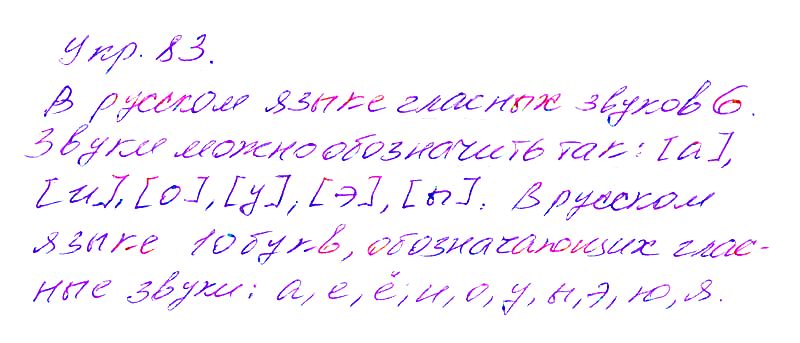 Укр. 83.
В русском языке гласных звуков 6.
Звуки можно обозначить так: [а],
[и], [о], [у], [э], [ы]. В русском
языке 10 букв, обозначающих глас-
ные звуки: а, е, ё, и, о, у, ы, э, ю, я.